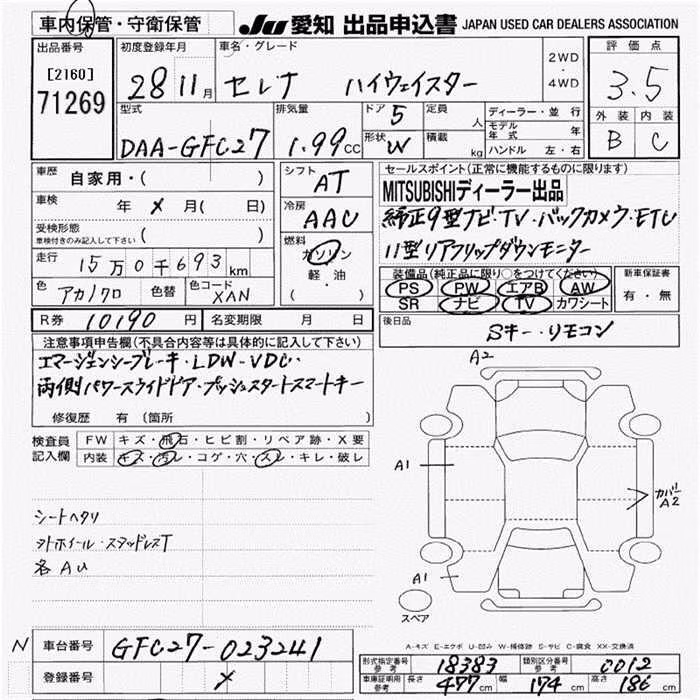 車内保管・守衛保管
JU 愛知 出品申込書 JAPAN USED CAR DEALERS ASSOCIATION
出品番号 初度登録年月 車名・グレード 2WD ・ 4WD 評価点
[2160] 71269 28 11月 セレナ ハイウェイスター 3.5
型式 排気量 ドア 5 定員 人 ディーラー・並行 外装 内装
DAA-GFC27 1.99CC 形状 W 積載 kg モデル年式 年 B C
ハンドル 左・右
車歴 自家用・( ) シフト AT セールスポイント(正常に機能するものに限ります)
車検 年 メ 月( 日) 冷房 AAC MITSUBISHIディーラー出品
受検形態 車検付きのみ記入して下さい ( ) 純正9型ナビ・TV・バックカメラ・ETC
走行 15万0千693km 燃料 ガソリン 軽・油 ( ) 11型リアフリップダウンモニター
色 アカ/クロ 色替 色コード XAN 装備品(純正品に限り○をつけてください) 新車保証書
PS PW エアB AW 有・無
SR ナビ TV カワシート
R券 10190円 名変期限 月 日 後日品 Sキー・リモコン
注意事項申告欄(不具合内容等は具体的に記入して下さい)
エマージェンシーブレーキ・LDW・VDC
両側パワースライドドア・プッシュスタートスマートキー
修復歴 有(箇所
検査員記入欄 FW キズ・飛石・ヒビ割・リペア跡・X要
内装 キズ・汚レ・コゲ・穴・スレ・キレ・破レ
シートヘタリ
外ホイール・スタッドレスT
各AU
A2
A1
カバーA2
A1
スペア
A-キズ E-エクボ U-凹み W-補修跡 S-サビ C-腐食 XX-交換済
N 車台番号 GFC27-023241
登録番号 メ
形式指定番号 参考 18383 類別区分番号 参考 0012
車庫証明用 参考 長さ 477cm 幅 174cm 高さ 186cm